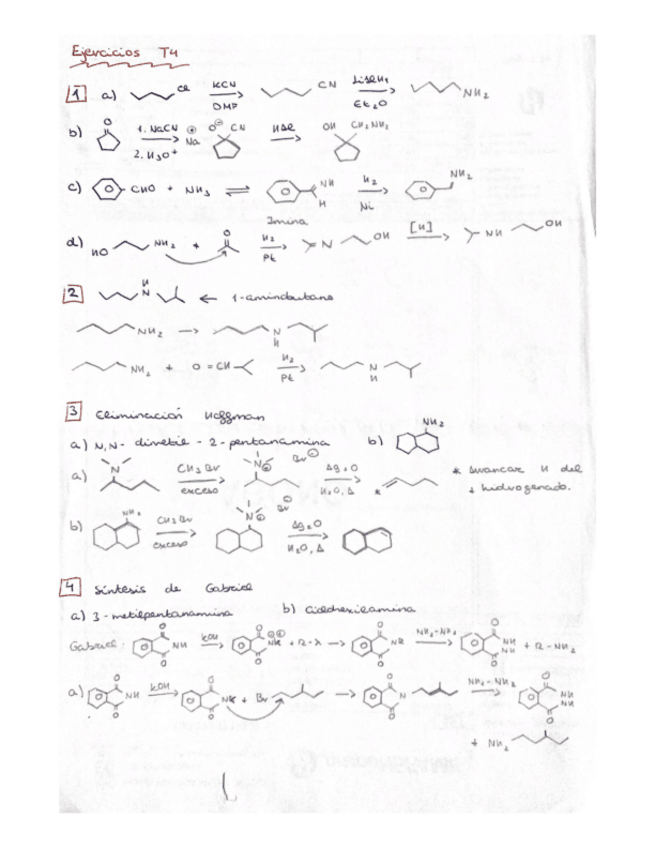 Ejercicios T4
1 a) Cl KCN DMF CN LiAlH4 Et2O NH2
b) O 1. NaCN 2. H3O+ Na ⊕ O⊖ CN OH CH2NH2
c) CHO + NH3 ⇌ NH H H2 Ni NH2
Imina
d) HO NH2 + O H2 Pt N OH [H] NH OH
2 H N ← 1-aminobutano
NH2 → N H
NH2 + O=CH H2 Pt → N H
3 Eliminación Hoffman
a) N,N-dimetil-2-pentanamina b) NH2
a) N CH3Br exceso N⊕ Br⊖ Ag2O H2O, Δ * * Arrancar H del
+ hidrogenado.
b) NH2 CH3Br exceso N⊕ Br⊖ Ag2O H2O, Δ
4 Síntesis de Gabriel
a) 3-metilpentanamina b) ciclohexilamina
Gabriel: O NH O KOH O NK O + R-X → O NR O NH2-NH2 O NH NH O + R-NH2
a) O NH O KOH O NK O + Br → O N O NH2-NH2 O NH NH O
+ NH2